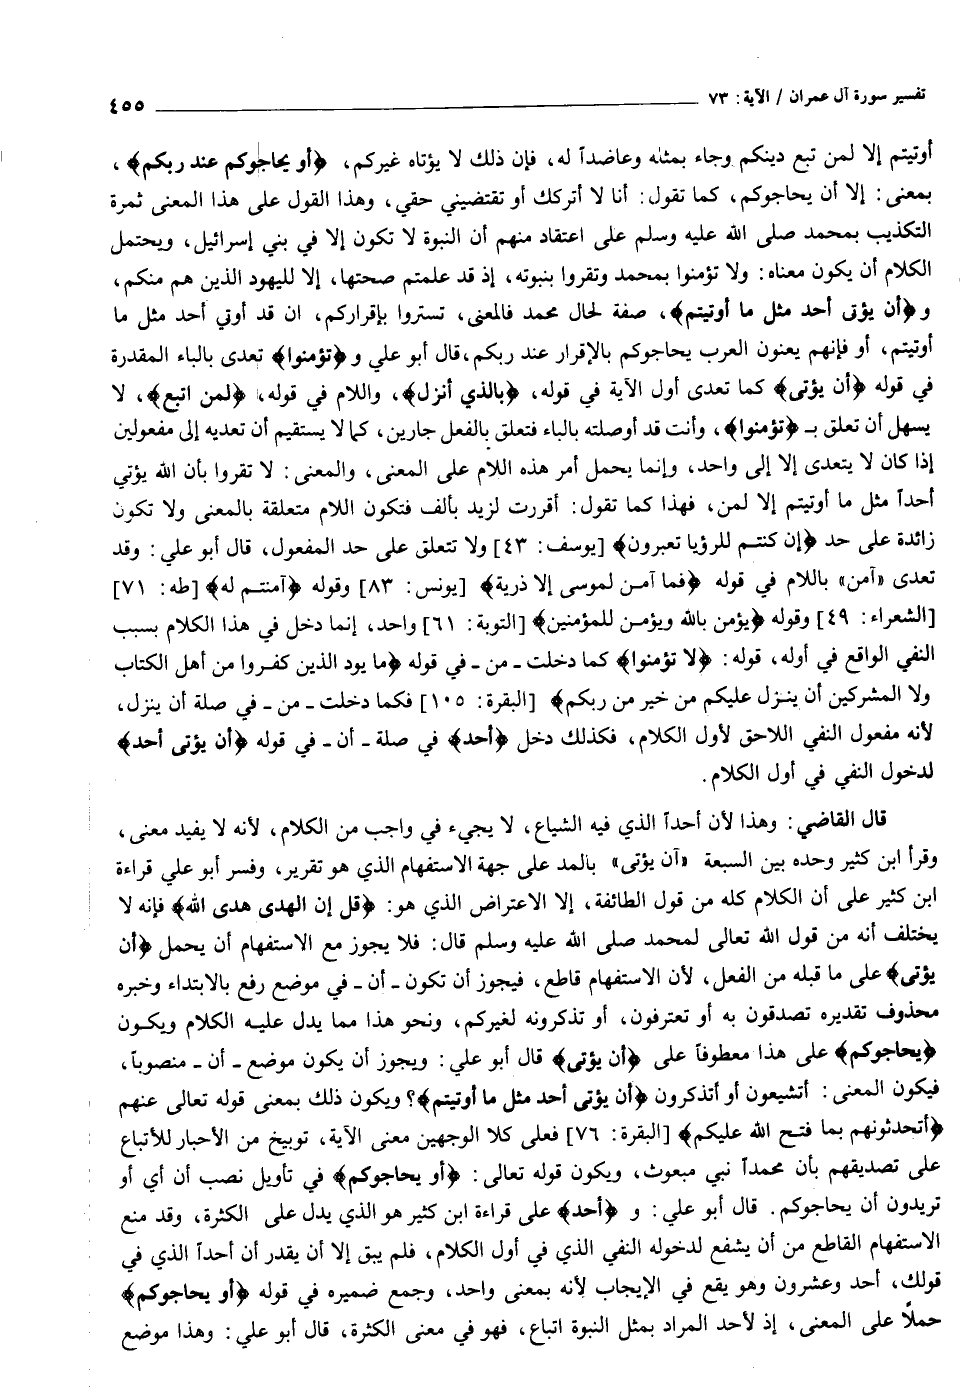 تفسير سورة آل عمران / الآية: ٧٣ ٤٥٥
أوتيتم إلا لمن تبع دينكم وجاء بمثله وعاضداً له، فإن ذلك لا يؤتاه غيركم، ﴿أو يحاجوكم عند ربكم﴾،
بمعنى: إلا أن يحاجوكم، كما تقول: أنا لا أتركك أو تقتضيني حقي، وهذا القول على هذا المعنى ثمرة
التكذيب بمحمد صلى الله عليه وسلم على اعتقاد منهم أن النبوة لا تكون إلا في بني إسرائيل، ويحتمل
الكلام أن يكون معناه: ولا تؤمنوا بمحمد وتقروا بنبوته، إذ قد علمتم صحتها، إلا لليهود الذين هم منكم،
و﴿أن يؤتى أحد مثل ما أوتيتم﴾، صفة لحال محمد فالمعنى، تستروا بإقراركم، ان قد أوتي أحد مثل ما
أوتيتم، أو فإنهم يعنون العرب يحاجوكم بالإقرار عند ربكم، قال أبو علي و﴿تؤمنوا﴾ تعدى بالباء المقدرة
في قوله ﴿أن يؤتى﴾ كما تعدى أول الآية في قوله، ﴿بالذي أنزل﴾، واللام في قوله، ﴿لمن اتبع﴾، لا
يسهل أن تعلق بـ ﴿تؤمنوا﴾، وأنت قد أوصلته بالباء فتعلق بالفعل جارين، كما لا يستقيم أن تعديه إلى مفعولين
إذا كان لا يتعدى إلا إلى واحد، وإنما يحمل أمر هذه اللام على المعنى، والمعنى: لا تقروا بأن الله يؤتي
أحداً مثل ما أوتيتم إلا لمن، فهذا كما تقول: أقررت لزيد بألف فتكون اللام متعلقة بالمعنى ولا تكون
زائدة على حد ﴿إن كنتم للرؤيا تعبرون﴾ [يوسف: ٤٣] ولا تتعلق على حد المفعول، قال أبو علي: وقد
تعدى «آمن» باللام في قوله ﴿فما آمن لموسى إلا ذرية﴾ [يونس: ٨٣] وقوله ﴿آمنتم له﴾ [طه: ٧١]
[الشعراء: ٤٩] وقوله ﴿يؤمن بالله ويؤمن للمؤمنين﴾ [التوبة: ٦١] واحد، إنما دخل في هذا الكلام بسبب
النفي الواقع في أوله، قوله: ﴿لا تؤمنوا﴾ كما دخلت ـ من ـ في قوله ﴿ما يود الذين كفروا من أهل الكتاب
ولا المشركين أن ينزل عليكم من خير من ربكم﴾ [البقرة: ١٠٥] فكما دخلت ـ من ـ في صلة أن ينزل،
لأنه مفعول النفي اللاحق لأول الكلام، فكذلك دخل ﴿أحد﴾ في صلة ـ أن ـ في قوله ﴿أن يؤتى أحد﴾
لدخول النفي في أول الكلام.
قال القاضي: وهذا لأن أحداً الذي فيه الشياع، لا يجيء في واجب من الكلام، لأنه لا يفيد معنى،
وقرأ ابن كثير وحده بين السبعة «آن يؤتى» بالمد على جهة الاستفهام الذي هو تقرير، وفسر أبو علي قراءة
ابن كثير على أن الكلام كله من قول الطائفة، إلا الاعتراض الذي هو: ﴿قل إن الهدى هدى الله﴾ فإنه لا
يختلف أنه من قول الله تعالى لمحمد صلى الله عليه وسلم قال: فلا يجوز مع الاستفهام أن يحمل ﴿أن
يؤتى﴾ على ما قبله من الفعل، لأن الاستفهام قاطع، فيجوز أن تكون ـ أن ـ في موضع رفع بالابتداء وخبره
محذوف تقديره تصدقون به أو تعترفون، أو تذكرونه لغيركم، ونحو هذا مما يدل عليه الكلام ويكون
﴿يحاجوكم﴾ على هذا معطوفاً على ﴿أن يؤتى﴾ قال أبو علي: ويجوز أن يكون موضع ـ أن ـ منصوباً،
فيكون المعنى: أتشيعون أو أتذكرون ﴿أن يؤتى أحد مثل ما أوتيتم﴾؟ ويكون ذلك بمعنى قوله تعالى عنهم
﴿أتحدثونهم بما فتح الله عليكم﴾ [البقرة: ٧٦] فعلى كلا الوجهين معنى الآية، توبيخ من الأحبار للأتباع
على تصديقهم بأن محمداً نبي مبعوث، ويكون قوله تعالى: ﴿أو يحاجوكم﴾ في تأويل نصب أن أي أو
تريدون أن يحاجوكم. قال أبو علي: و ﴿أحد﴾ على قراءة ابن كثير هو الذي يدل على الكثرة، وقد منع
الاستفهام القاطع من أن يشفع لدخوله النفي الذي في أول الكلام، فلم يبق إلا أن يقدر أن أحداً الذي في
قولك، أحد وعشرون وهو يقع في الإيجاب لأنه بمعنى واحد، وجمع ضميره في قوله ﴿أو يحاجوكم﴾
حملاً على المعنى، إذ لأحد المراد بمثل النبوة اتباع، فهو في معنى الكثرة، قال أبو علي: وهذا موضع